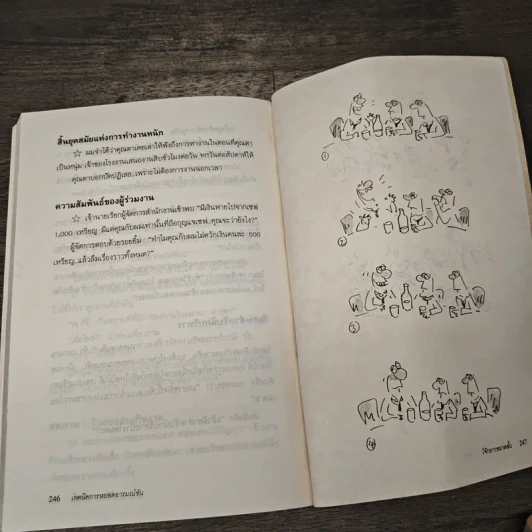 สิ้นยุคสมัยแห่งการทำงานหนัก
☆ ผมจำได้ว่าคุณตาเคยเล่าให้ฟังถึงการทำงานในตอนที่คุณตา
เป็นหนุ่ม เจ้าของโรงงานเสนองานสิบชั่วโมงต่อวัน หกวันต่อสัปดาห์ให้
คุณตาบอกปัดปฏิเสธ..เพราะไม่ต้องการงานนอกเวลา
ความสัมพันธ์ของผู้ร่วมงาน
☆ เจ้านายเรียกผู้จัดการสำนักงานเข้าพบ “มีเงินหายไปจากเซฟ
1,000 เหรียญ มีแต่คุณกับผมเท่านั้นที่ถือกุญแจเซฟ..คุณจะว่ายังไง?”
ผู้จัดการตอบด้วยรอยยิ้ม “ทำไมคุณกับผมไม่ควักเงินคนละ 500
เหรียญ..แล้วลืมเรื่องราวทั้งหมด?”
246 เทคนิคการหยอดอารมณ์ขัน
1
2
3
4
247